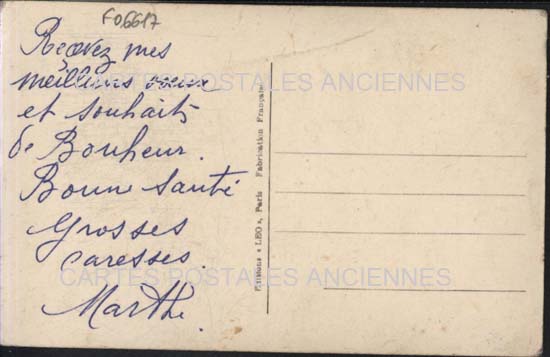 F06617
Recevez mes
meilleurs vœux
et souhaits
de Bonheur.
Bonne Santé
Grosses
caresses.
Marthe.
Editions « LEO », Paris Fabrication Française
CARTES POSTALES ANCIENNES
CARTES POSTALES ANCIENNES